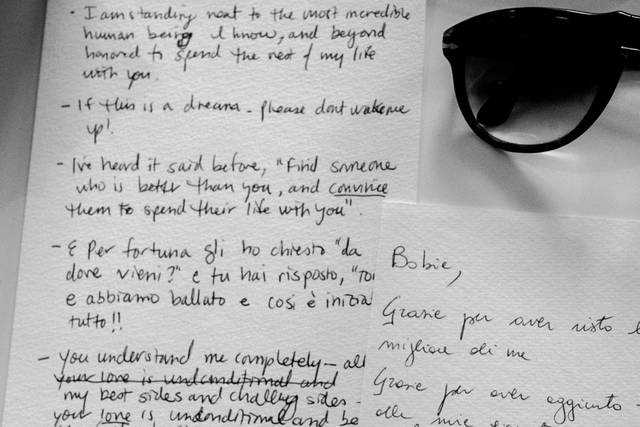 • I am standing next to the most incredible
human being I know, and beyond
honored to spend the rest of my life
with you.
– If this is a dream - please dont wake me
up!
– I've heard it said before, "Find someone
who is better than you, and convince
them to spend their life with you".
– E Per fortuna gli ho chiesto "da
dove vieni?" e tu hai risposto,
e abbiamo ballato e così è
tutto!!
– you understand me completely – all
your love is undconditional and
my best sides and challeng sides -
your love is undconditional and be
Bobie,
Grazie per aver visto
migliore di me
Grazie per aver aggiunto
alla mia